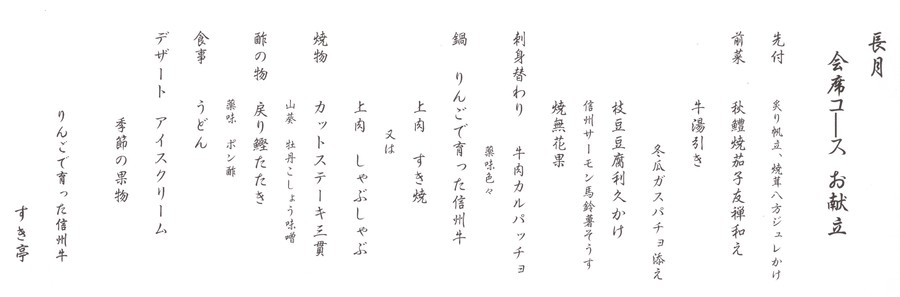 長月
会席コース お献立
先付 炙り帆立、焼茸八方ジュレかけ
前菜 秋鱧焼茄子友禅和え
牛湯引き
冬瓜ガスパチョ添え
枝豆豆腐利久かけ
信州サーモン馬鈴薯そうす
焼無花果
刺身替わり 牛肉カルパッチョ
薬味色々
鍋 りんごで育った信州牛
上肉 すき焼
又は
上肉 しゃぶしゃぶ
焼物 カットステーキ三貫
山葵 牡丹こしょう味噌
酢の物 戻り鰹たたき
薬味 ポン酢
食事 うどん
デザート アイスクリーム
季節の果物
りんごで育った信州牛
すき亭